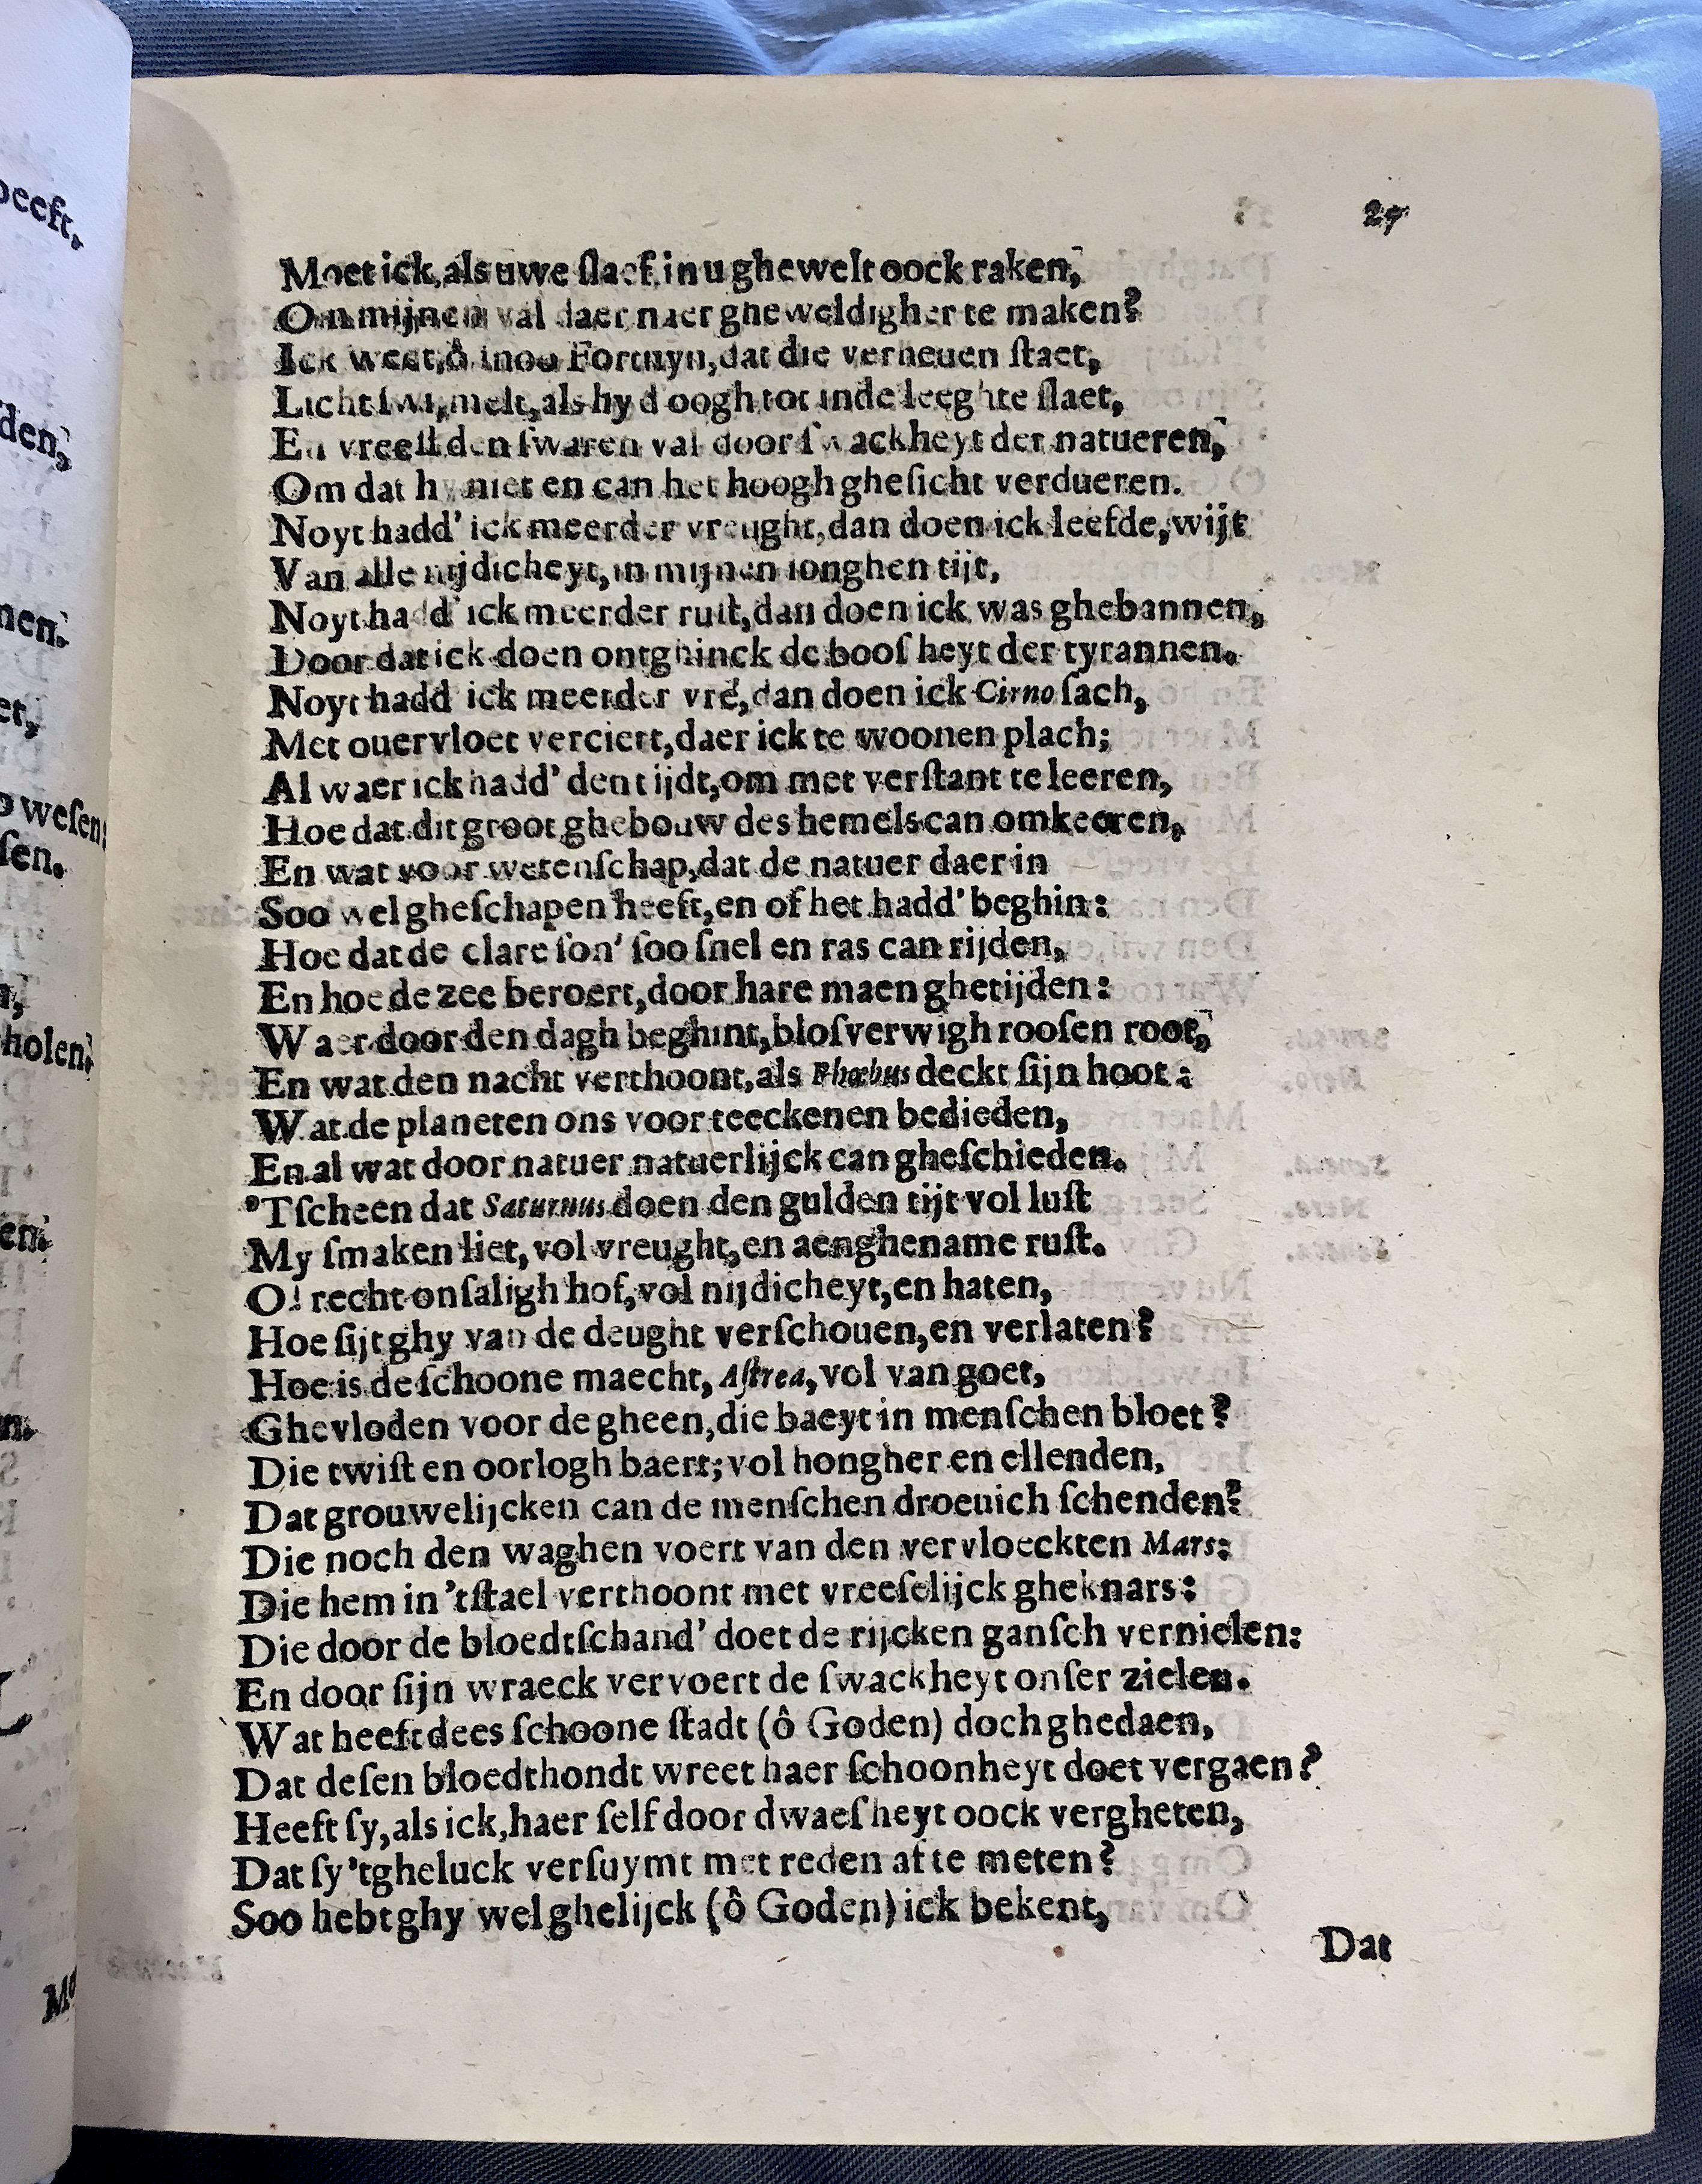 27
Moet ick, als uwe slaef in u ghewelt oock raken,
Om mijnen val daer naer gheweldigher te maken?
Ick weet, ô snoo Fortuyn, dat die verheuen staet,
Licht swijmelt, als hy d'oogh tot inde leeghte slaet,
En vreest den swaren val door swackheyt der natueren,
Om dat hy niet en can het hoogh ghesicht verdueren.
Noyt hadd' ick meerder vreught, dan doen ick leefde, wijt
Van alle nijdicheyt, in mijnen ionghen tijt,
Noyt hadd' ick meerder rust, dan doen ick was ghebannen,
Door dat ick doen ontghinck de boosheyt der tyrannen.
Noyt hadd ick meerder vré, dan doen ick Cirno sach,
Met ouervloet verciert, daer ick te woonen plach;
Al waer ick hadd' den tijdt, om met verstant te leeren,
Hoe dat dit groot ghebouw des hemels can omkeeren,
En wat voor wetenschap, dat de natuer daer in
Soo wel gheschapen heeft, en of het hadd' beghin:
Hoe dat de clare son' soo snel en ras can rijden,
En hoe de zee beroert, door hare maen ghetijden:
Waer door den dagh beghint, blosverwigh roosen root,
En wat den nacht verthoont, als Phœbus deckt sijn hoot:
Wat de planeten ons voor teeckenen bedieden,
En al wat door natuer natuerlijck can gheschieden.
'Tscheen dat Saturnus doen den gulden tijt vol lust
My smaken liet, vol vreught, en aenghename rust.
O! recht onsaligh hof, vol nijdicheyt, en haten,
Hoe sijt ghy van de deught verschouen, en verlaten?
Hoe is de schoone maecht, Astrea, vol van goet,
Ghevloden voor de gheen, die baeyt in menschen bloet?
Die twist en oorlogh baert; vol hongher en ellenden,
Dat grouwelijcken can de menschen droeuich schenden?
Die noch den waghen voert van den vervloeckten Mars:
Die hem in 'tstael verthoont met vreeselijck gheknars:
Die door de bloedtschand' doet de rijcken gansch vernielen:
En door sijn wraeck vervoert de swackheyt onser zielen.
Wat heeft dees schoone stadt (ô Goden) doch ghedaen,
Dat desen bloedthondt wreet haer schoonheyt doet vergaen?
Heeft sy, als ick, haer self door dwaesheyt oock vergheten,
Dat sy 'tgheluck versuymt met reden af te meten?
Soo hebt ghy wel ghelijck (ô Goden) ick bekent,
Dat